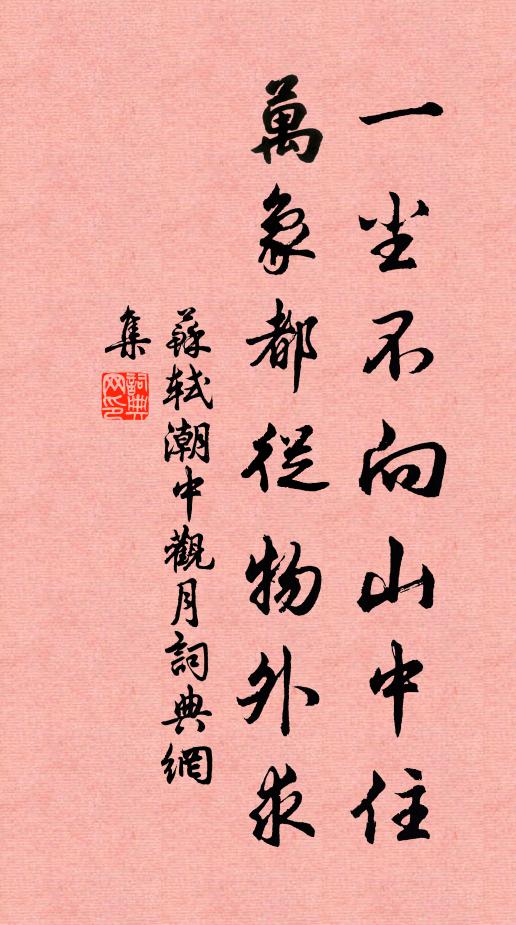 一尘不向山中住
萬象都從物外求
蘇軾潮中觀月詞典網
集
詞典
网印